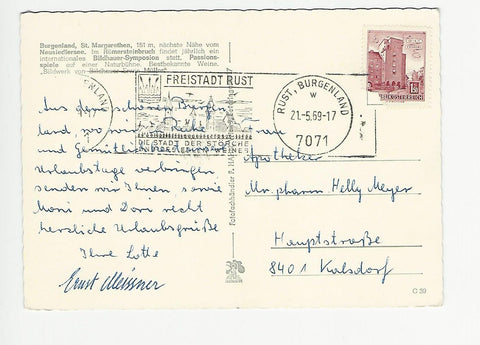 Burgenland, St. Margarethen, 151 m, nächste Nähe vom
Neusiedlersee. Im Römersteinbruch findet jährlich ein
internationales Bildhauer-Symposion statt. Passions-
spiele auf einer Naturbühne. Bestbekannte Weine.
"Bildwerk von Bildhauer
FREISTADT RUST
DIE STADT DER STÖRCHE
UND DES EDLEN WEINES
RUST, BURGENLAND
w
21.-5.69-17
7071
REPUBLIK ÖSTERREICH
Aus dem schönen Burgen
land, wo wir Ruhe
und Gemütlichkeit
Urlaubstage verbringen
senden wir Ihnen, sowie
Moni und Dori recht
herzliche Urlaubsgrüße
Ihre Lotte
Ernst Meissner
Fotofachhändler P. HA
Frau
Apotheker
Mr. pharm Helly Meyer
Hauptstraße
8401 Kalsdorf
C 39